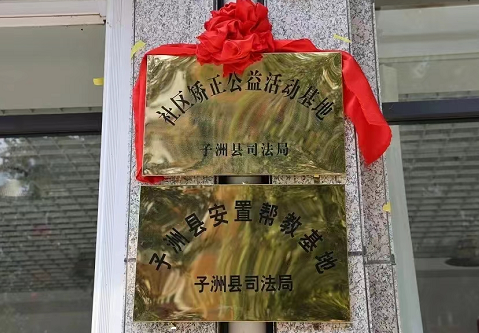 社区矫正公益活动基地
子洲县司法局
子洲县安置帮教基地
子洲县司法局